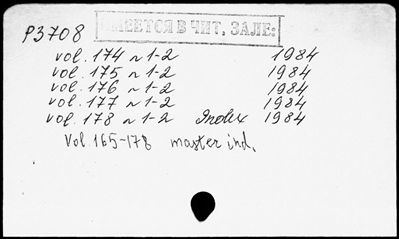 ИМЕЕТСЯ В ЧИТ. ЗАЛЕ:
P3708
vol. 174 n 1-2 1984
vol. 175 n 1-2 1984
vol. 176 n 1-2 1984
vol. 177 n 1-2 1984
vol. 178 n 1-2 Index 1984
Vol 165-178 master ind.